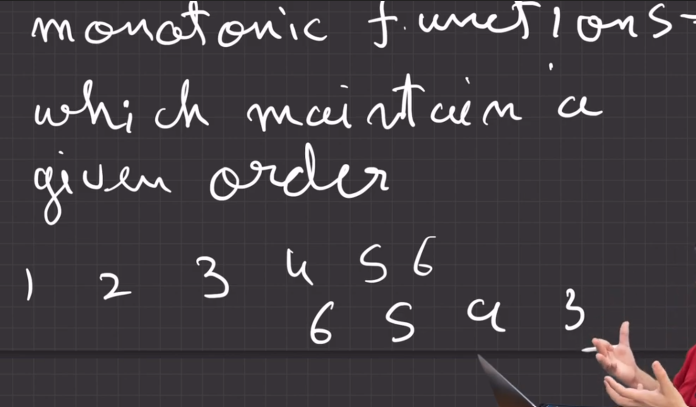 monotonic functions-
which maintain a
given order
1 2 3 4 5 6
6 5 4 3